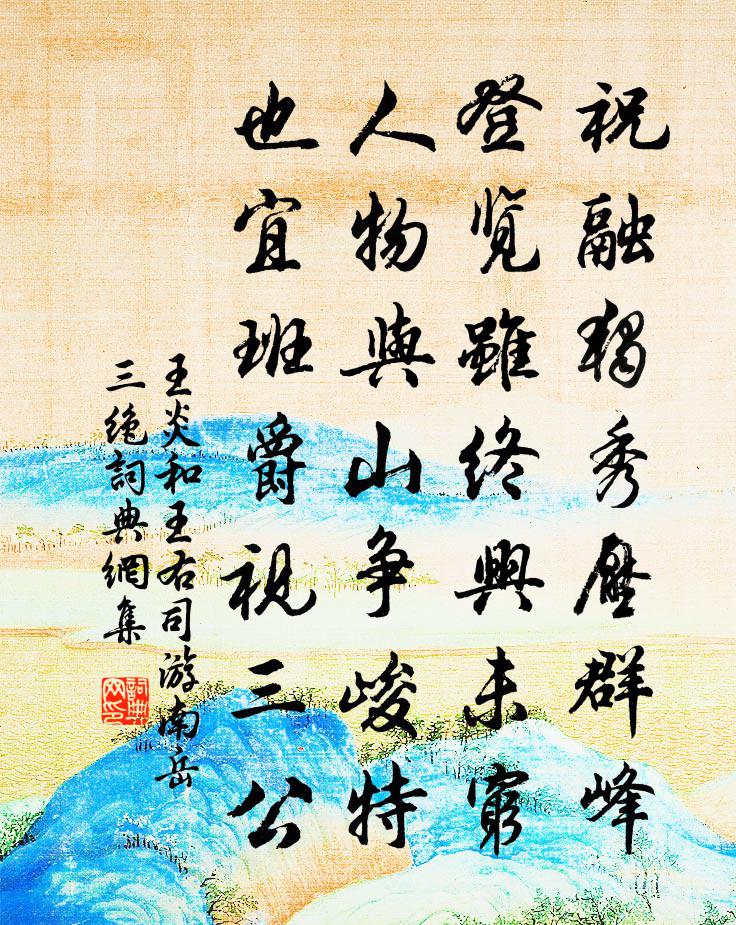 祝融独秀壓群峰
登览雖终興未窮
人物與山争峻特
也宜班爵視三公
王炎和王右司游南岳
三绝詞典網集
詞典网印